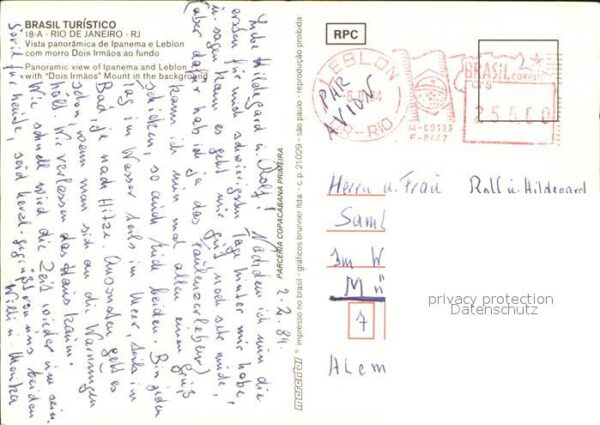 BRASIL TURÍSTICO
18-A - RIO DE JANEIRO - RJ
Vista panorâmica de Ipanema e Leblon
com morro Dois Irmãos ao fundo
Panoramic view of Ipanema and Leblon
with "Dois Irmãos" Mount in the background
2.2.84.
Liebe Hildegard u. Rolf! Nachdem ich nun die
ersten für mich schwierigsten Tage hinter mir habe,
u. sagen kann es geht mir gut, noch sehr müde,
(aber dafür hab ich ja das Faulenzerleben)
kann ich nun mal allen einen Gruß
schicken, so auch Euch beiden. Bin jeden
Tag im Wasser teils im Meer, teils im
Bad, je nach Hitze. Ansonsten geht es
schon, wenn man sich an die Warnungen
hält. Wir verlassen das Haus kaum.
Wie schnell wird die Zeit wieder um sein.
Soviel für heute, seid herzl. gegrüßt von uns beiden
Willi u. Monika
PARCERIA COPACABANA PRIMEIRA
mercator
impresso no brasil - gráficos brunner ltda. - c. p. 21.029 - são paulo - reprodução proibida
RPC
LEBLON
DR-RIO
PAR
AVION
BRASIL CORREIO
256,00
Herrn u. Frau Rolf u. Hildegard
Samb
Im W
Mü
7
Alem
privacy protection
Datenschutz